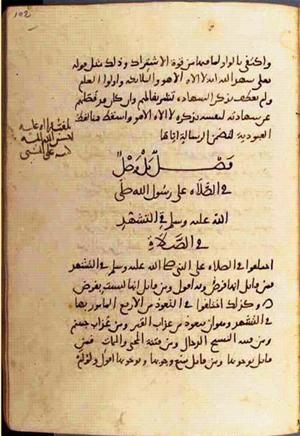 واكتفى بالواو لما فيها من قوة الاشتراك وذلك مثل قوله
تعالى شهد الله انه لا اله الا هو والملائكة واولوا العلم
ولم يعطف بذكر الشهادة تشريفا لهم وان كان قد فصلهم
عن شهادته لنفسه بذكره لا اله الا هو واسقط هنا لفظ
العبودية لتضمن الرسالة اياها
فصل بل وصل
في الصلاة على رسول الله صلى
الله عليه وسلم في التشهد
في الصلاة
اختلفوا في الصلاة على النبي صلى الله عليه وسلم في التشهد
فمن قائل انها فرض وبه اقول ومن قائل انها ليست بفرض
وكذلك اختلفوا في التعوذ من الاربع المأمور بها
في التشهد وهو ان يتعوذ من عذاب القبر ومن عذاب جهنم
ومن فتنة المسيح الدجال ومن فتنة المحيا والممات فمن
قائل بوجوبها ومن قائل بمنع وجوبها وبوجوبها اقول ولو لم